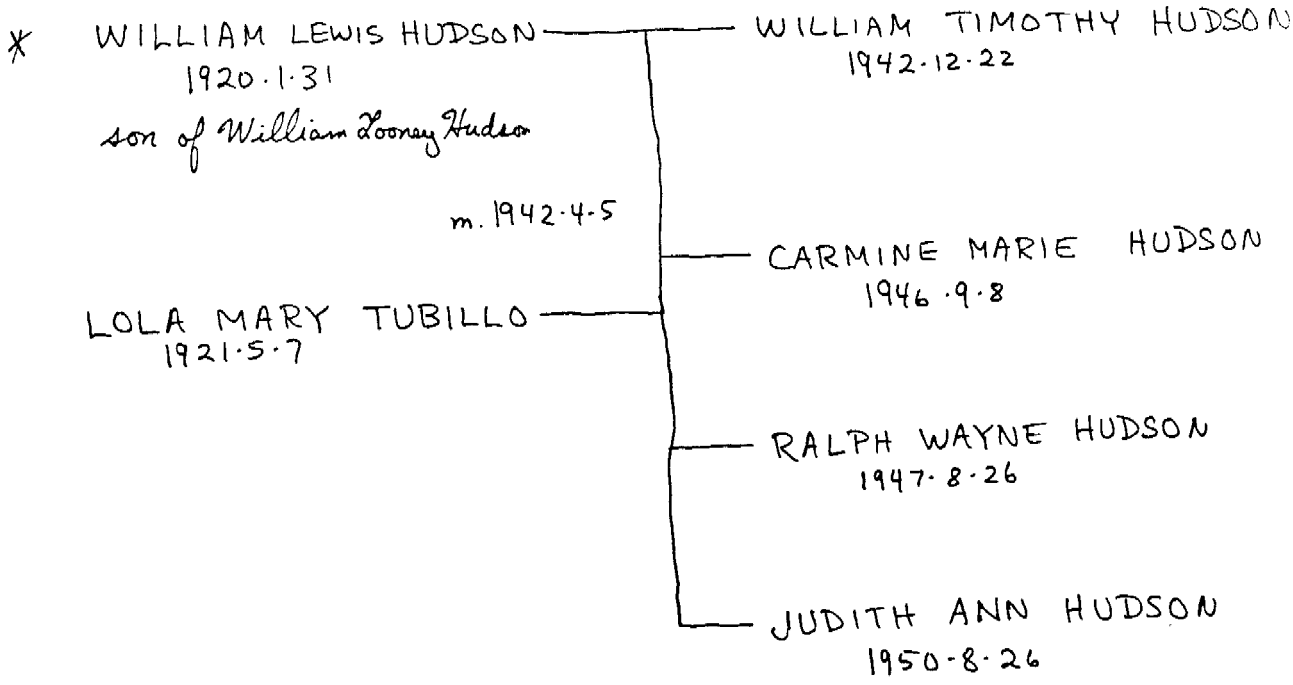 * WILLIAM LEWIS HUDSON
1920.1.31
son of William Looney Hudson
m. 1942.4.5
LOLA MARY TUBILLO
1921.5.7
WILLIAM TIMOTHY HUDSON
1942.12.22
CARMINE MARIE HUDSON
1946.9.8
RALPH WAYNE HUDSON
1947.8.26
JUDITH ANN HUDSON
1950.8.26